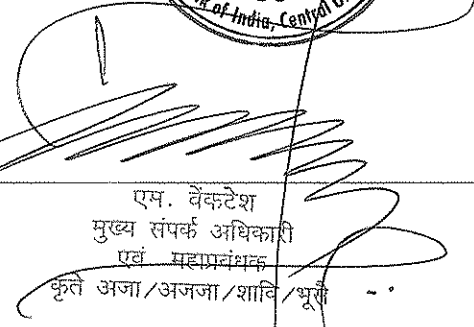 k of India, Central O
एम. वेंकटेश
मुख्य संपर्क अधिकारी
एवं महाप्रबंधक
कृते अजा/अजजा/शावि/भूसै